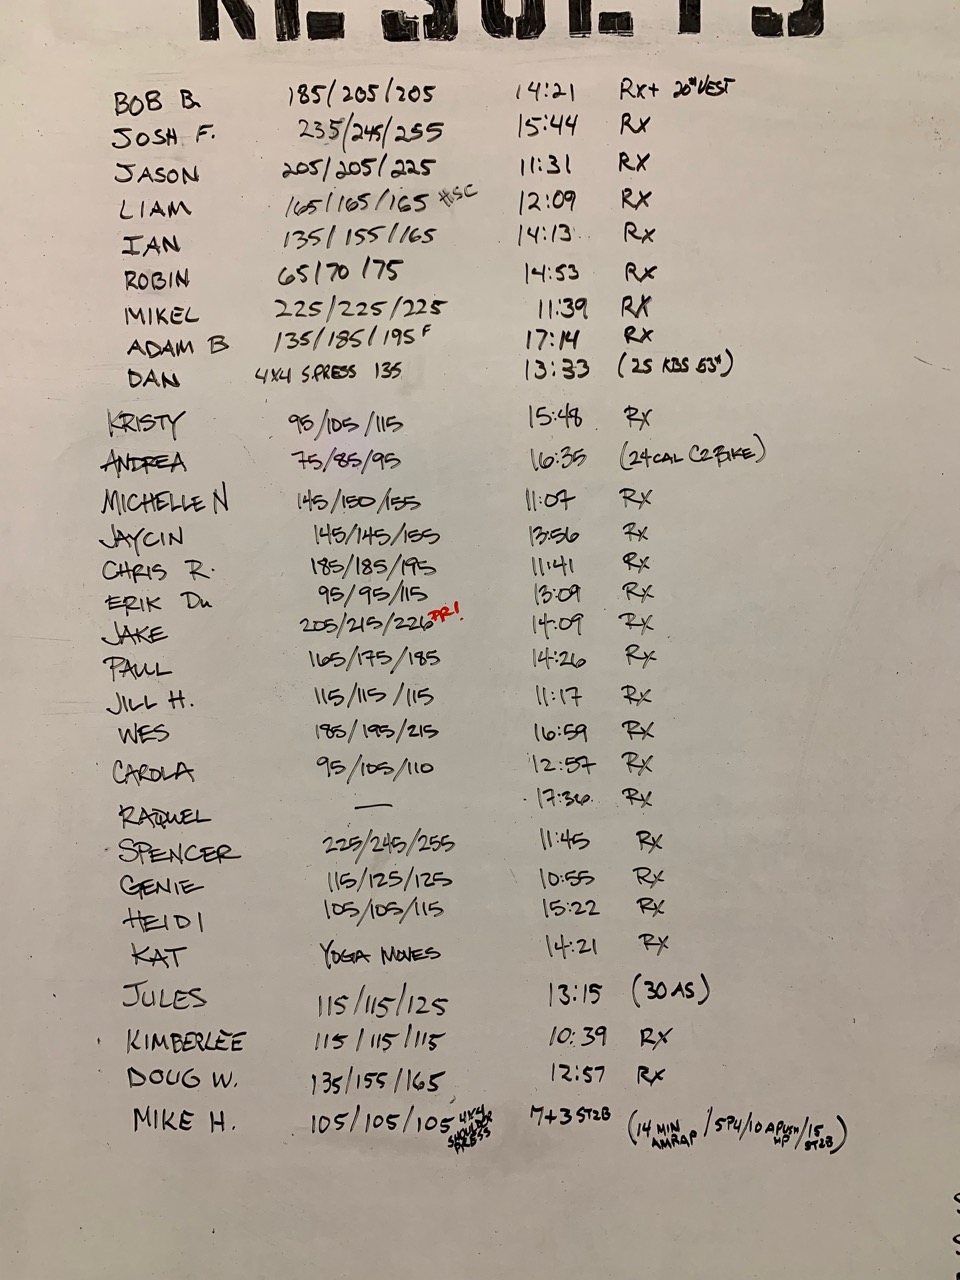 RESULTS
BOB B. 185/205/205 14:21 RX+ 20# VEST
JOSH F. 235/245/255 15:44 RX
JASON 205/205/225 11:31 RX
LIAM 165/165/165 #SC 12:09 RX
IAN 135/155/165 14:13 RX
ROBIN 65/70/75 14:53 RX
MIKEL 225/225/225 11:39 RX
ADAM B 135/185/195 F 17:14 RX
DAN 4x4 S.PRESS 135 13:33 (25 KBS 53#)
KRISTY 95/105/115 15:48 RX
ANDREA 75/85/95 16:35 (24 CAL C2 BIKE)
MICHELLE N 145/150/155 11:07 RX
JAYCIN 145/145/155 13:56 RX
CHRIS R. 185/185/195 11:41 RX
ERIK Du 95/95/115 13:09 RX
JAKE 205/215/226 PR! 14:09 RX
PAUL 165/175/185 14:26 RX
JILL H. 115/115/115 11:17 RX
WES 185/195/215 16:59 RX
CAROLA 95/105/110 12:57 RX
RAQUEL — 17:36 RX
SPENCER 225/245/255 11:45 RX
GENIE 115/125/125 10:55 RX
HEIDI 105/105/115 15:22 RX
KAT YOGA MOVES 14:21 RX
JULES 115/115/125 13:15 (30 AS)
KIMBERLEE 115/115/115 10:39 RX
DOUG W. 135/155/165 12:57 RX
MIKE H. 105/105/105 4x4 SHOULDER PRESS 7+3 ST2B (14 MIN AMRAP / 5 PU/10 APUSH UP/15 ST2B)